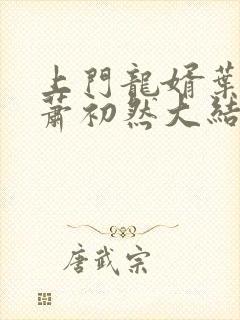 上門龍婿葉
蕭初然大結
唐武宗